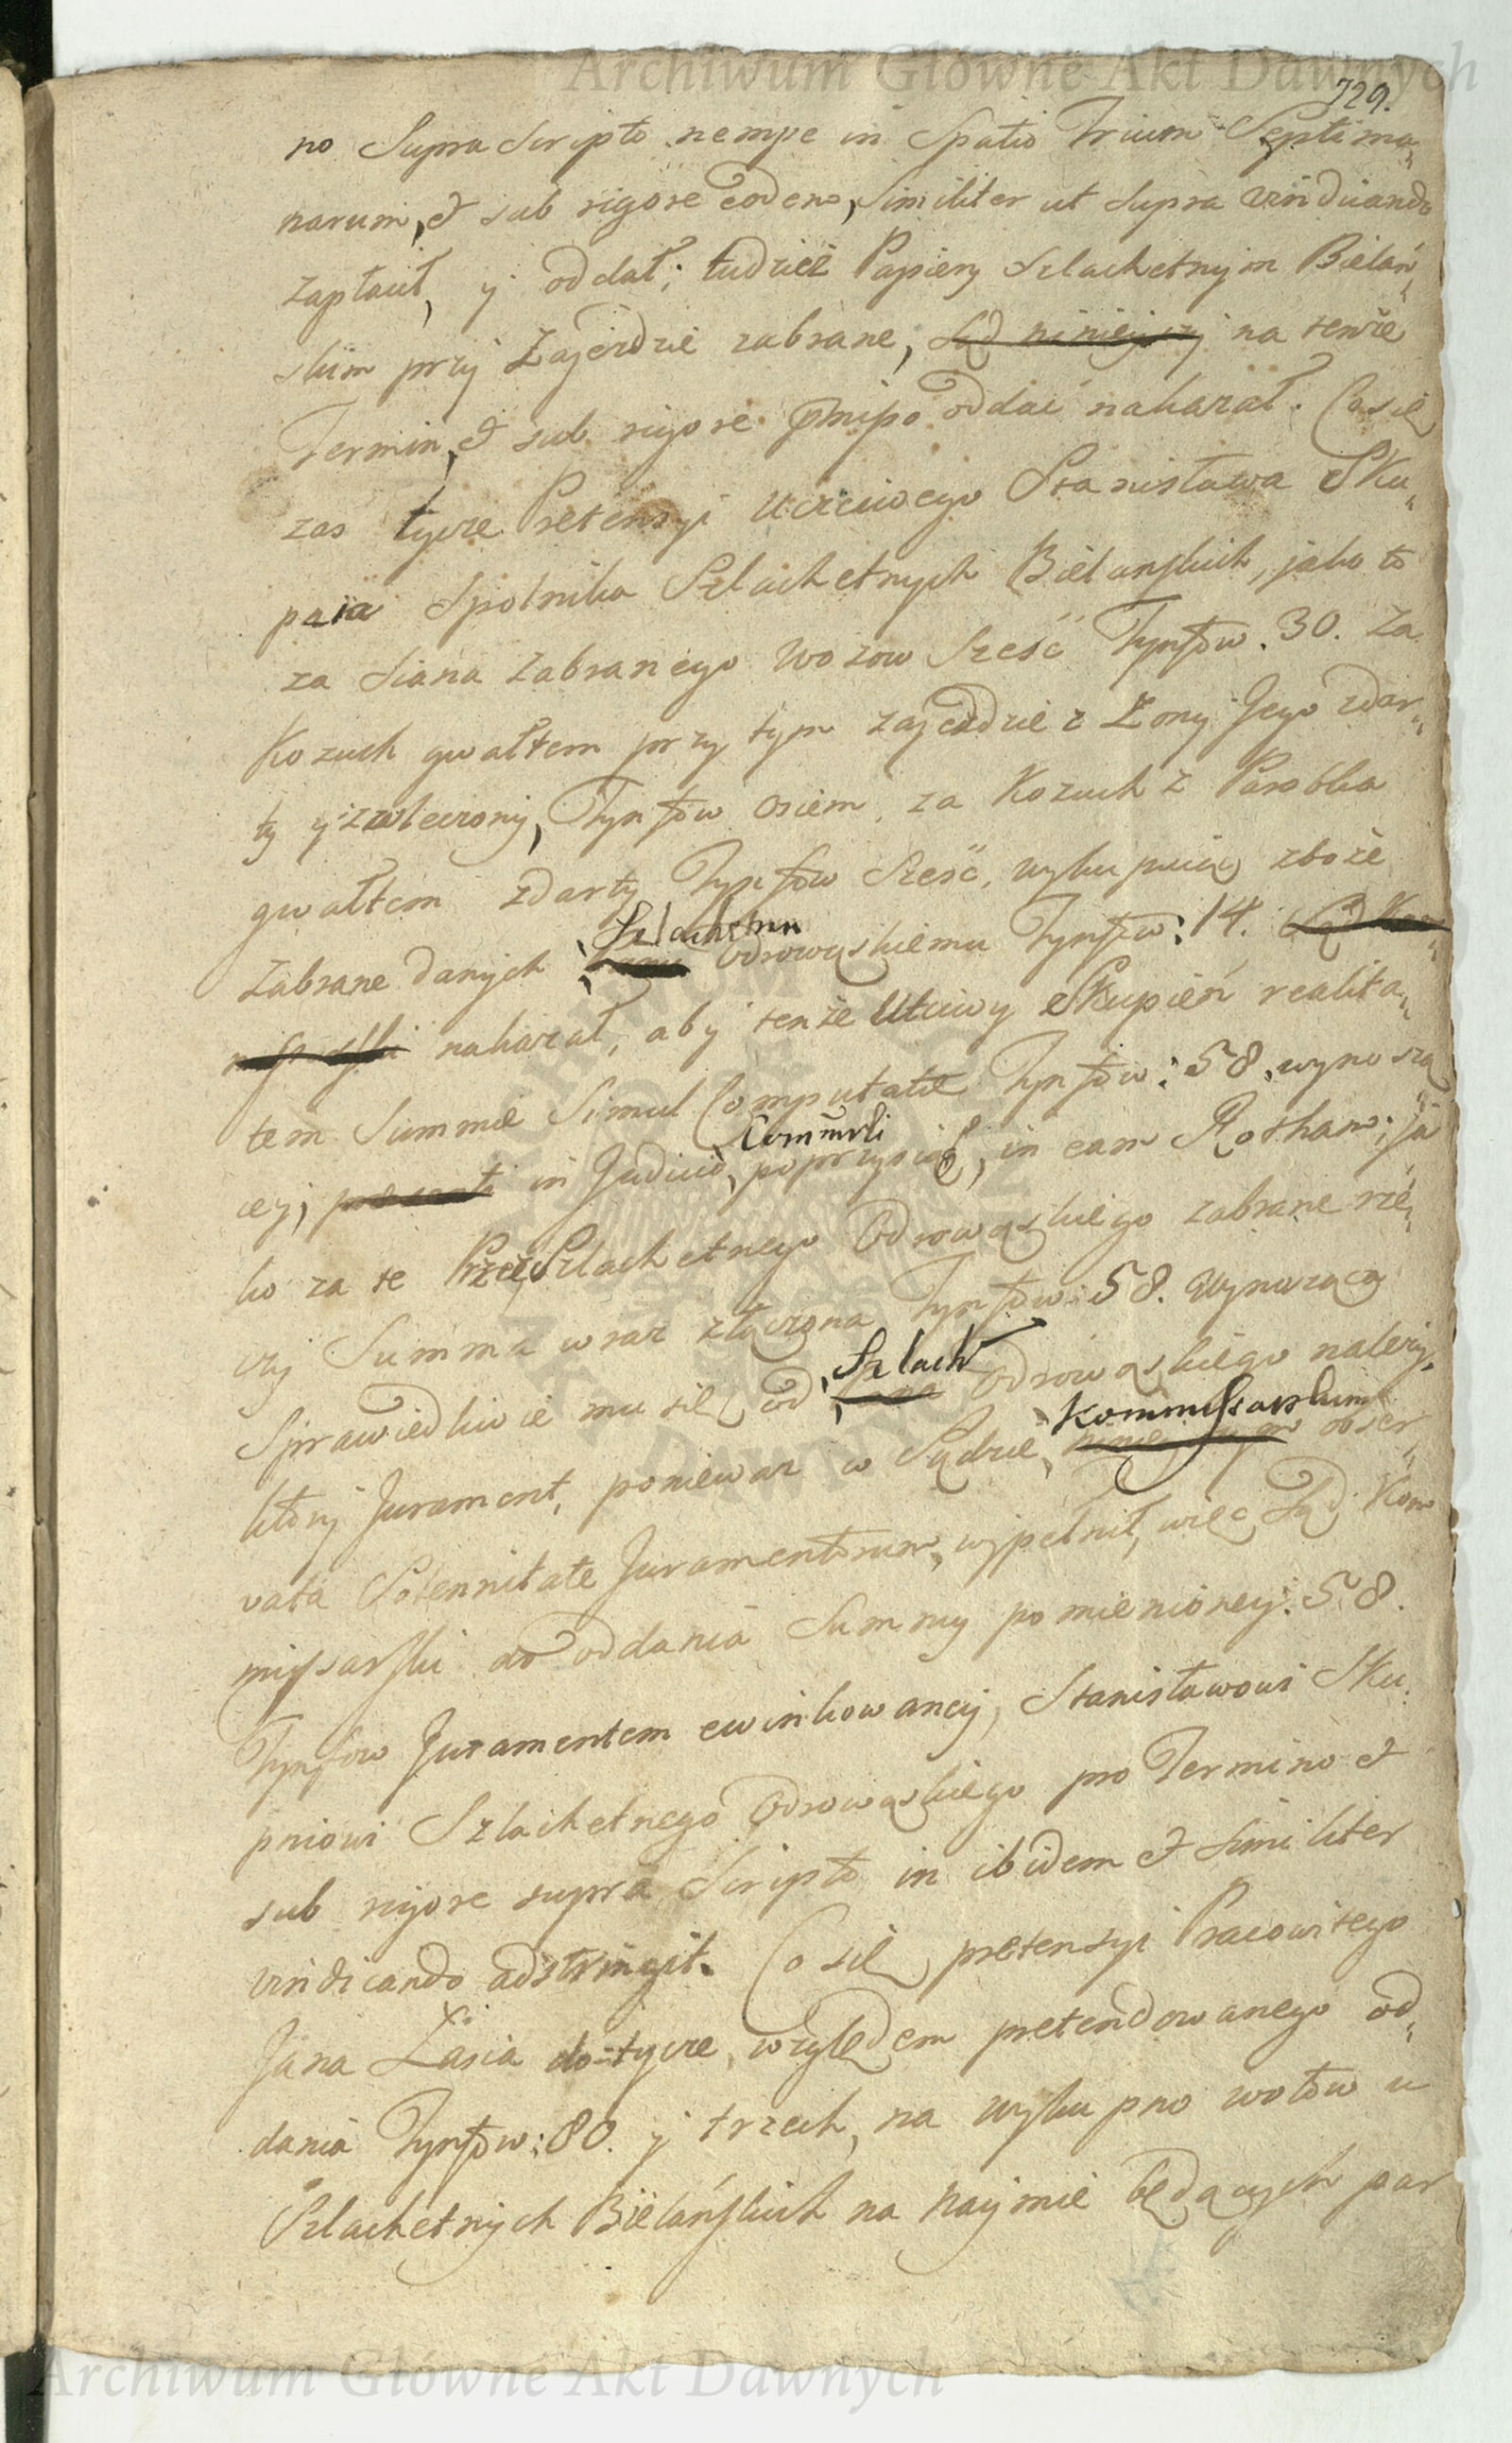 Archiwum Główne Akt Dawnych
729.
no Supra Scripto nempe in Spatio Trium Septima„
narum, & sub rigore eodem, similiter ut supra vindicando
zapłacił, y oddał; tudzież Papiery Szlachetnym Bielań„
skim przy Zajezdzie zabrane, Sąd ninieyszy na tenże
Termin, & sub rigore oddać nakazał. Co się
zas tycze Pretensyi Uczciwego Stanisława Sku„
pnia Spolnika Szlachetnych Bielanskich, jako to
za Siana Zabranego Wozow Sześć Tynfow. 30. Za
Kozuch gwałtem przy tym zajezdzie z Zony Jego zdar„
ty y zwleczony, Tynfow osiem, za Kozuch z Parobka
gwałtem zdarty Tynfow Sześć, wykupuiąc zboże
Szlachetnu
Zabrane danych Odrowąskiemu Tynfow: 14. Sąd Kom„
nakazał, aby tenże Utciwy Skupień realita„
tem Summe Simul Computatæ Tynfow: 58. wynoszą
Kommrli
cey, in Judicio, poprzysiągł, in eam Rotham; ja
ko za te Przez Szlachetnego Odrowąskiego zabrane rze„
czy Summa wraz złączona Tynfow: 58. Wynosząca
Szlach
Sprawiedliwie mu się od Odrowąskiego należy.
Kommissarskim
ktory Jurament, poniewaz w Sądzie, obser„
vata Solennitate Juramentorum, wypełnił, więc Sąd Kom
missarski do oddania Summy pomienioney: 58.
Tynfow Juramentem ewinkowaney, Stanisławowi Sku„
pniowi Szlachetnego Odrowąskiego pro Termino &
sub rigore supra Scripto in ibidem & similiter
vindicando adstringit. Co się pretensyi Pracowitego
Jana Łasia do-tycze, względem pretendowanego od„
dania Tynfow: 80. y trzech, na wykupno wołow u
Szlachetnych Bielańskich na Naymie będących par
Archiwum Główne Akt Dawnych